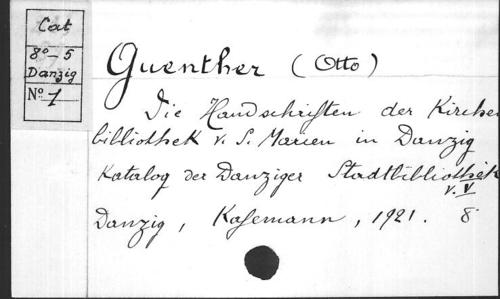 Cat
8º-5
Danzig
Nº 1
Guenther (Otto)
Die Handschriften der Kirchen
bibliothek v. S. Marien in Danzig
Katalog der Danziger Stadtbibliothek
v. V
Danzig, Kafemann, 1921. 8º